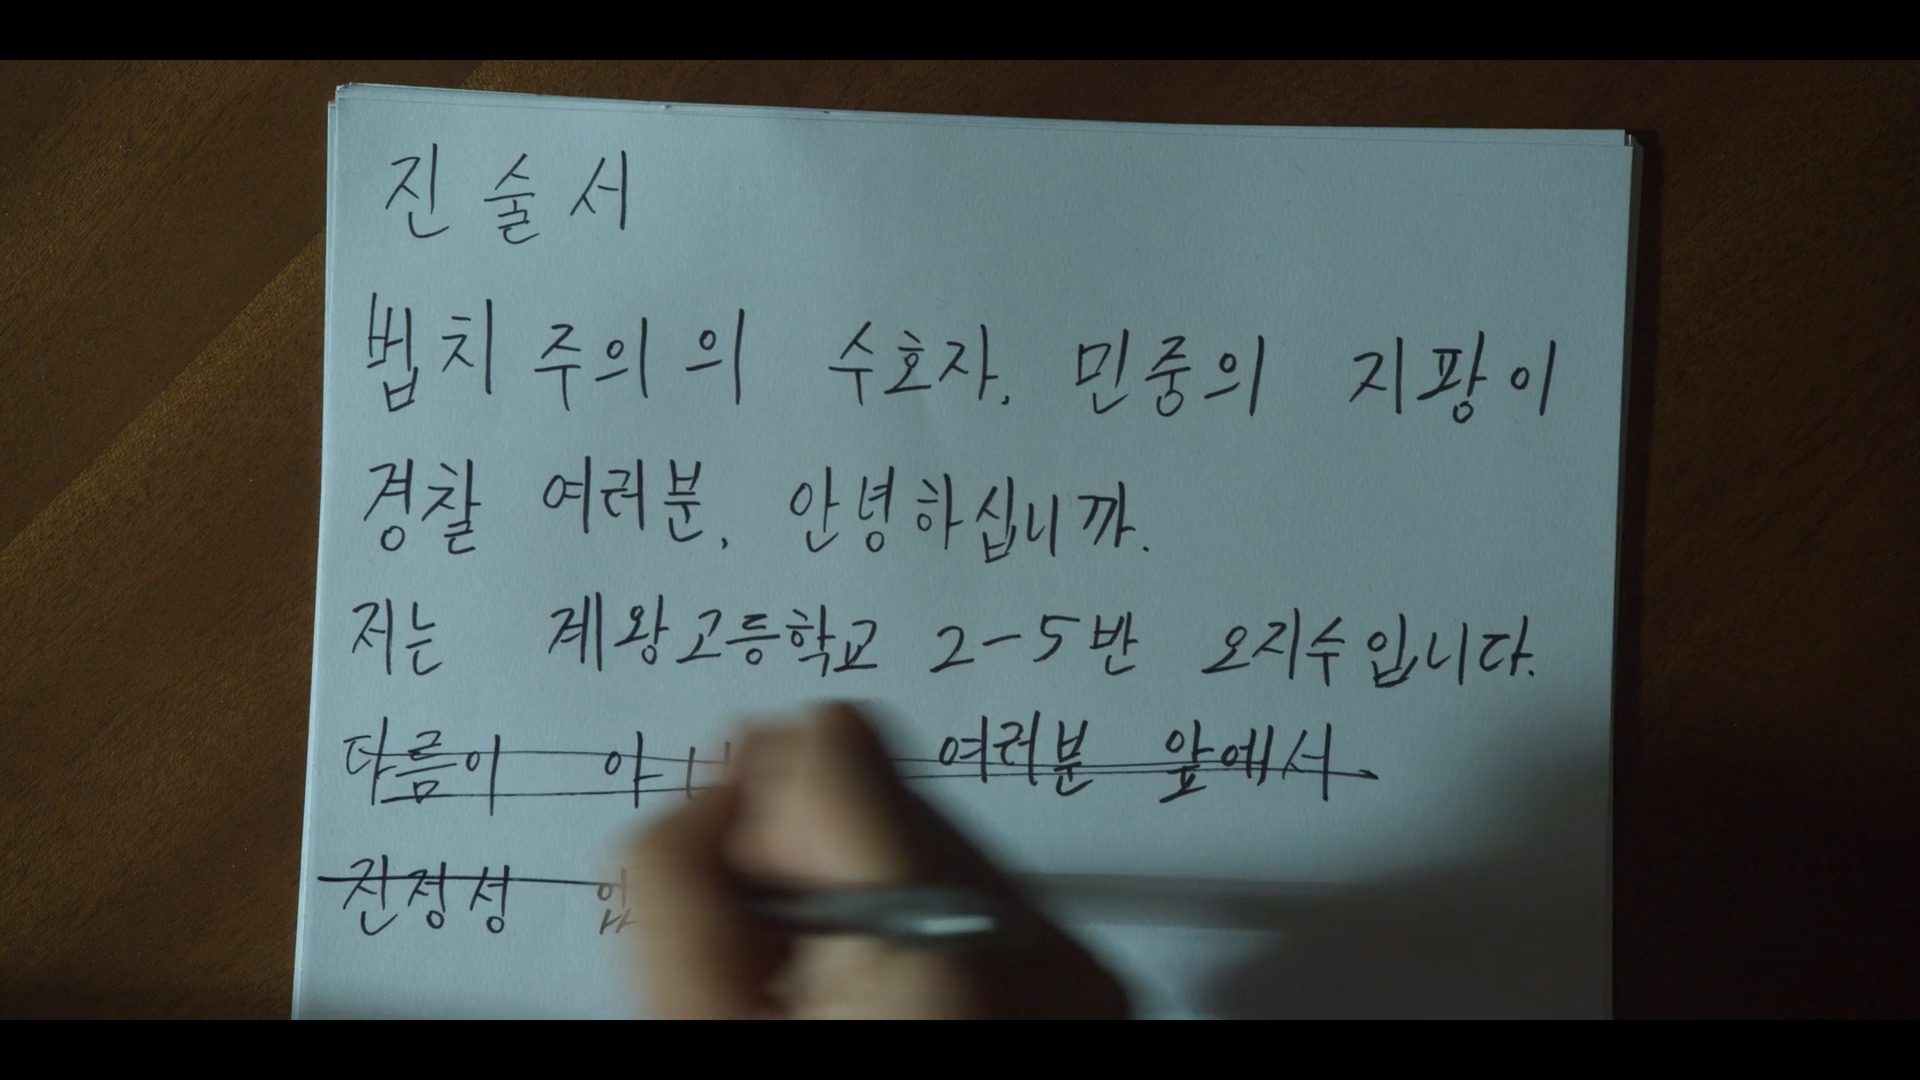 진술서
법치주의의 수호자, 민중의 지팡이
경찰 여러분, 안녕하십니까.
저는 계왕고등학교 2-5반 오지수입니다.
다름이 여러분 앞에서
진정성